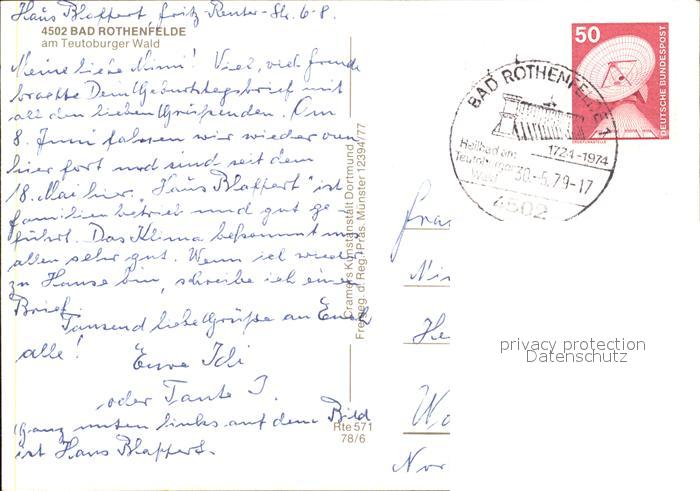 Haus Blaffert, Fritz Reuter-Str. 6-8.
4502 BAD ROTHENFELDE
am Teutoburger Wald
Meine liebe Mimi! Viel, viel Freude
brachte Dein Geburtstagsbrief mit
all den lieben Grüssenden. Am
8. Juni fahren wir wieder von
hier fort und sind seit dem
18. Mai hier. "Haus Blaffert" ist
Familienbetrieb und gut ge-
führt. Das Klima bekommt uns
allen sehr gut. Wenn ich wieder
zu Hause bin, schreibe ich einen
Brief.
Tausend liebe Grüße an Euch
alle!
Eure Idi
oder Tante I.
Ganz unten links auf dem Bild
ist Haus Blaffert.
Cramers Kunstanstalt Dortmund
Freigeg. d. Reg.-Präs. Münster 12394/77
Rte 571
78/6
BAD ROTHENFELDE 1
1724-1974
Heilbad am
Teutoburger
Wald
30.-5.79-17
4502
50
DEUTSCHE BUNDESPOST
privacy protection
Datenschutz